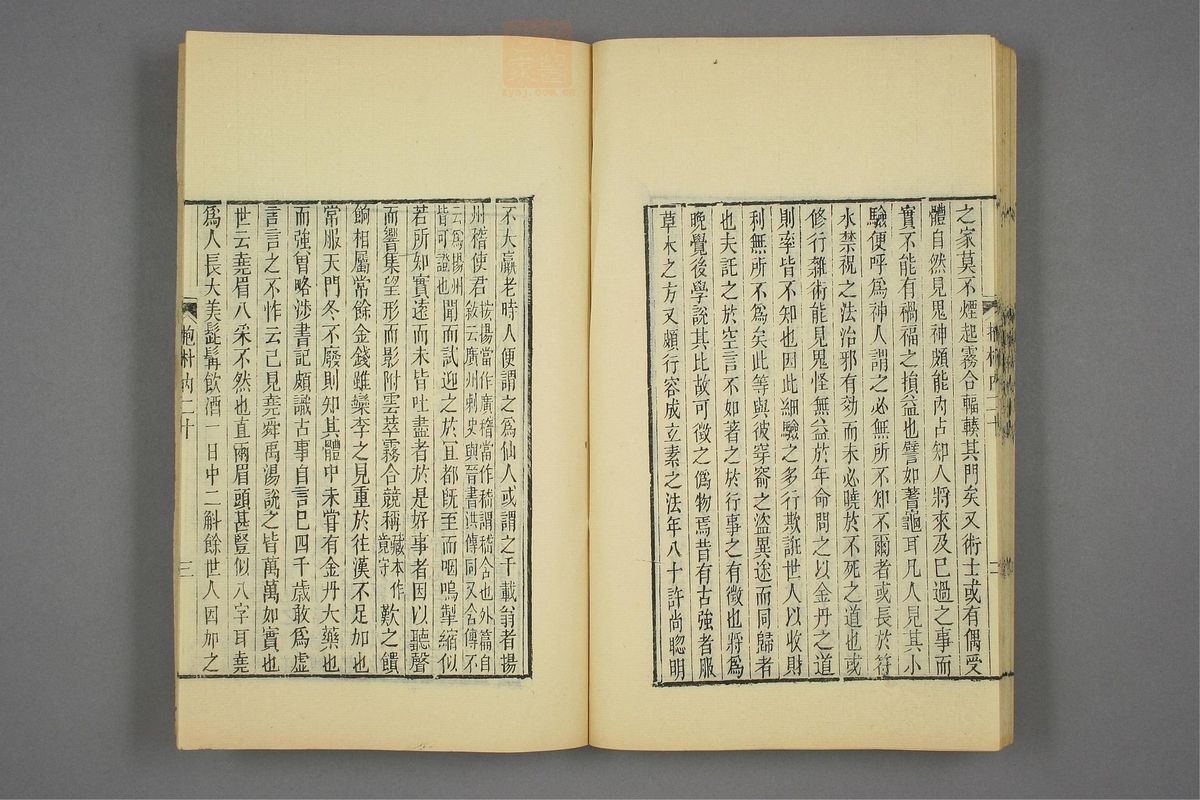 之家莫不煙起霧合輻輳其門矣又術士或有偶受
體自然見鬼神頗能內占知人將來及已過之事而
實不能有禍福之損益也譬如蓍龜耳凡人見其小
驗便呼爲神人謂之必無所不知不爾者或長於符
水禁祝之法治邪有効而未必曉於不死之道也或
修行雜術能見鬼怪無益於年命問之以金丹之道
則率皆不知也因此細驗之多行欺誑世人以收財
利無所不爲矣此等與彼穿窬之盜異途而同歸者
也夫託之於空言不如著之於行事之有徵也將爲
晚覺後學說其比故可徵之僞物焉昔有古強者服
草木之方又頗行容成玄素之法年八十許尚聰明
抱朴內二十
二
不大羸老時人便謂之爲仙人或謂之千載翁者揚
州稽使君按揚當作廣稽當作嵇謂嵇含也外篇自敘云廣州刺史與晉書洪傳同又含傳不
云爲揚州皆可證也聞而試迎之於宜都旣至而咽嗚掣縮似
若所知實遠而未皆吐盡者於是好事者因以聽聲
而響集望形而影附雲萃霧合競稱藏本作竟守歎之饋
餉相屬常餘金錢雖欒李之見重於往漢不足加也
常服天門冬不廢則知其體中未嘗有金丹大藥也
而強曾略涉書記頗識古事自言已四千歲敢爲虛
言言之不怍云己見堯舜禹湯說之皆萬萬如實也
世云堯眉八采不然也直兩眉頭甚豎似八字耳堯
爲人長大美髭髯飲酒一日中二斛餘世人因加之
抱朴內二十
三